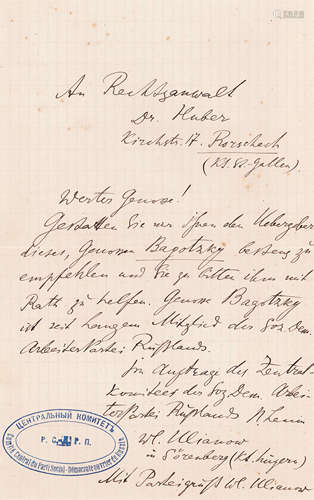 An Rechtsanwalt
Dr. Huber
Kirchstr. 17. Rorschach
(Kt. St-Gallen)
Werter Genosse!
Gestatten Sie mir Ihnen den Ueberbringer
dieses, Genossen Bagotzky bestens zu
empfehlen und Sie zu bitten ihm mit
Rath zu helfen. Genosse Bagotzky
ist seit langem Mitglied der Soz. Dem.
Arbeiter Partei Rußlands.
Im Auftrage des Zentral-
komitees der Soz. Dem. Arbei-
ter Partei Rußlands N. Lenin
Wl. Ulianow
in Sörenberg (Kt. Luzern)
Mit Parteigruß Wl. Ulianow
ЦЕНТРАЛЬНЫЙ КОМИТЕТЪ
Р. С. Д. Р. П.
Comité Central du Parti Social-Démocrate ouvrier de Russie